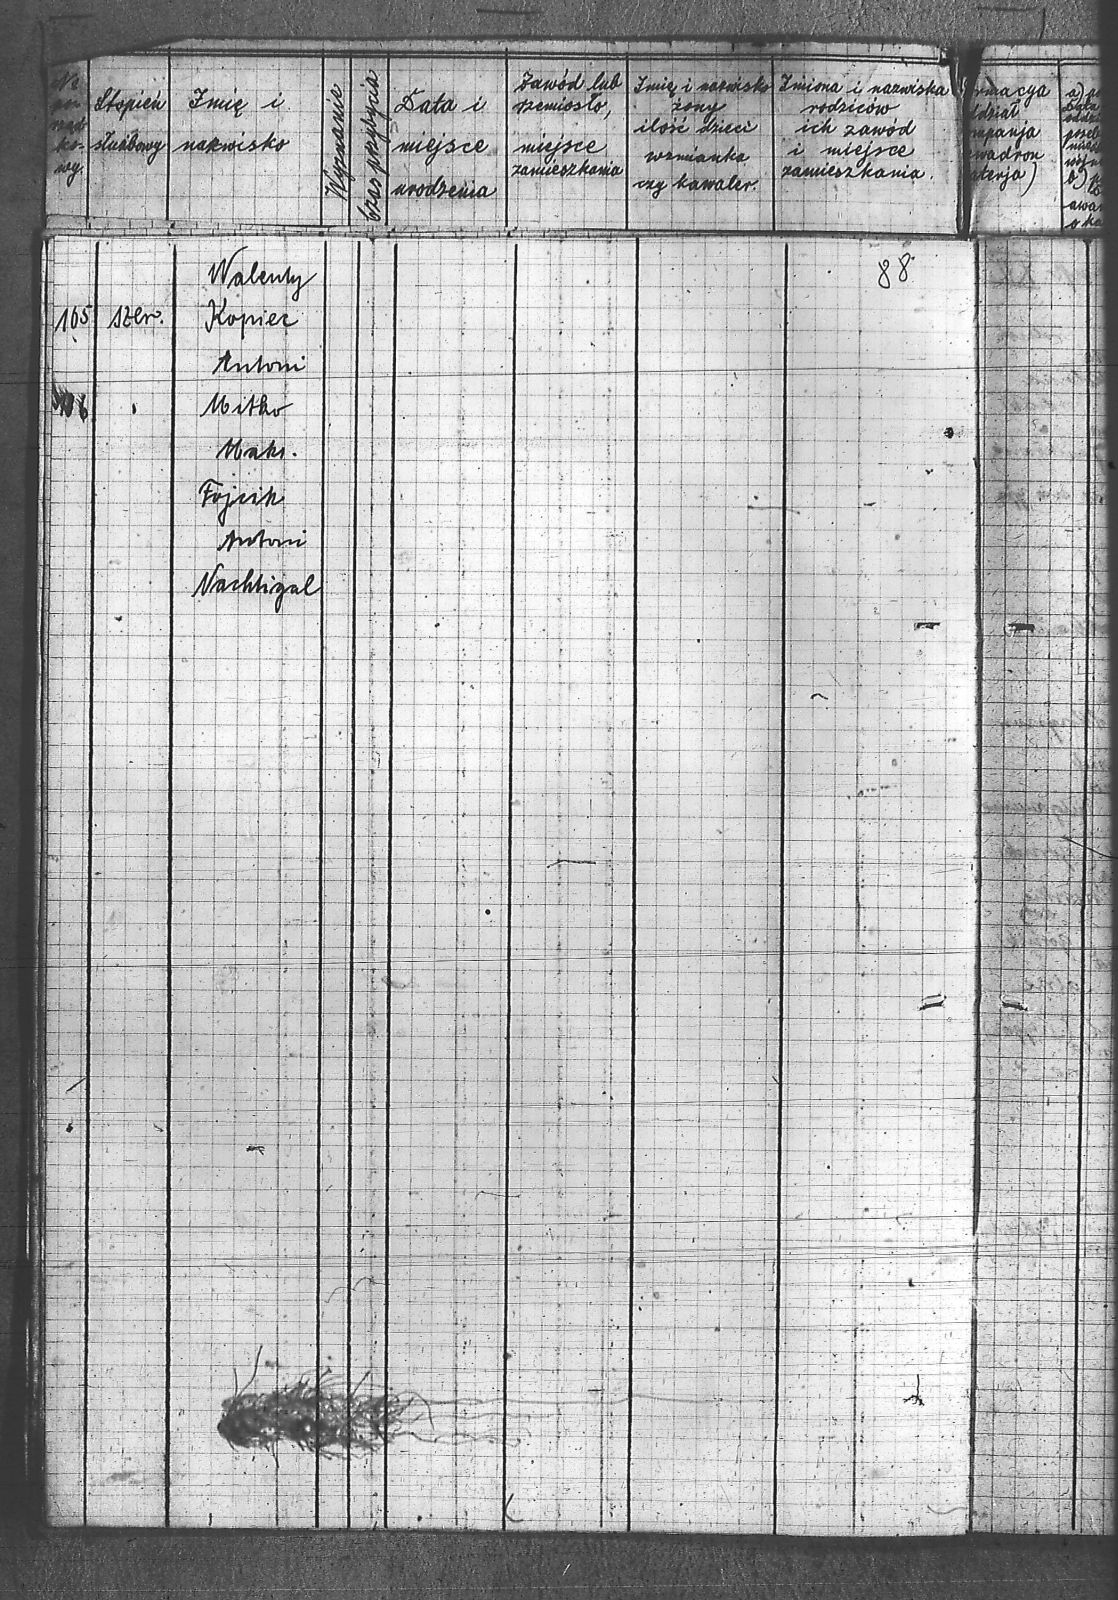 Stopień
służbowy
Imię i
nazwisko
Wyznanie
Czas przybycia
Data i
miejsce
urodzenia
Zawód lub
rzemiosło,
miejsce
zamieszkania
Imię i nazwisko
żony
ilość dzieci
wzmianka
czy kawaler.
Imiona i nazwiska
rodziców
ich zawód
i miejsce
zamieszkania.
88
Walenty
105 szer. Kopiec
Antoni
Mitko
Maks.
Fojcik
Antoni
Nachtigal